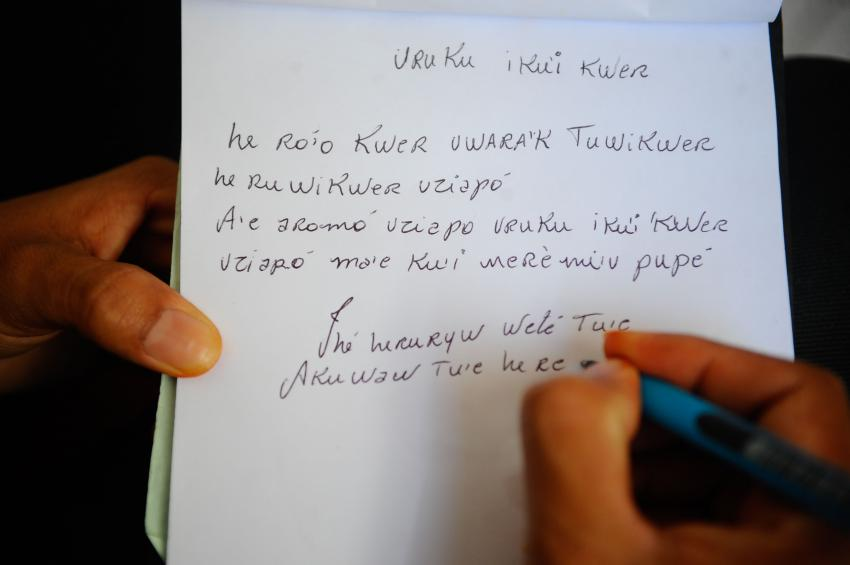 URUKU iKu'i KWER
he RO'O KWER UWARA'K TUWiKWER
he RuWiKWER uziapó
A'e aromó uziapo URUKU iKu'i 'KWER
uziapó ma'e Kwi merèmi'u pupé
Ihé heRuRyW Weté Tu'e
AKuWaW Tu'e he Re